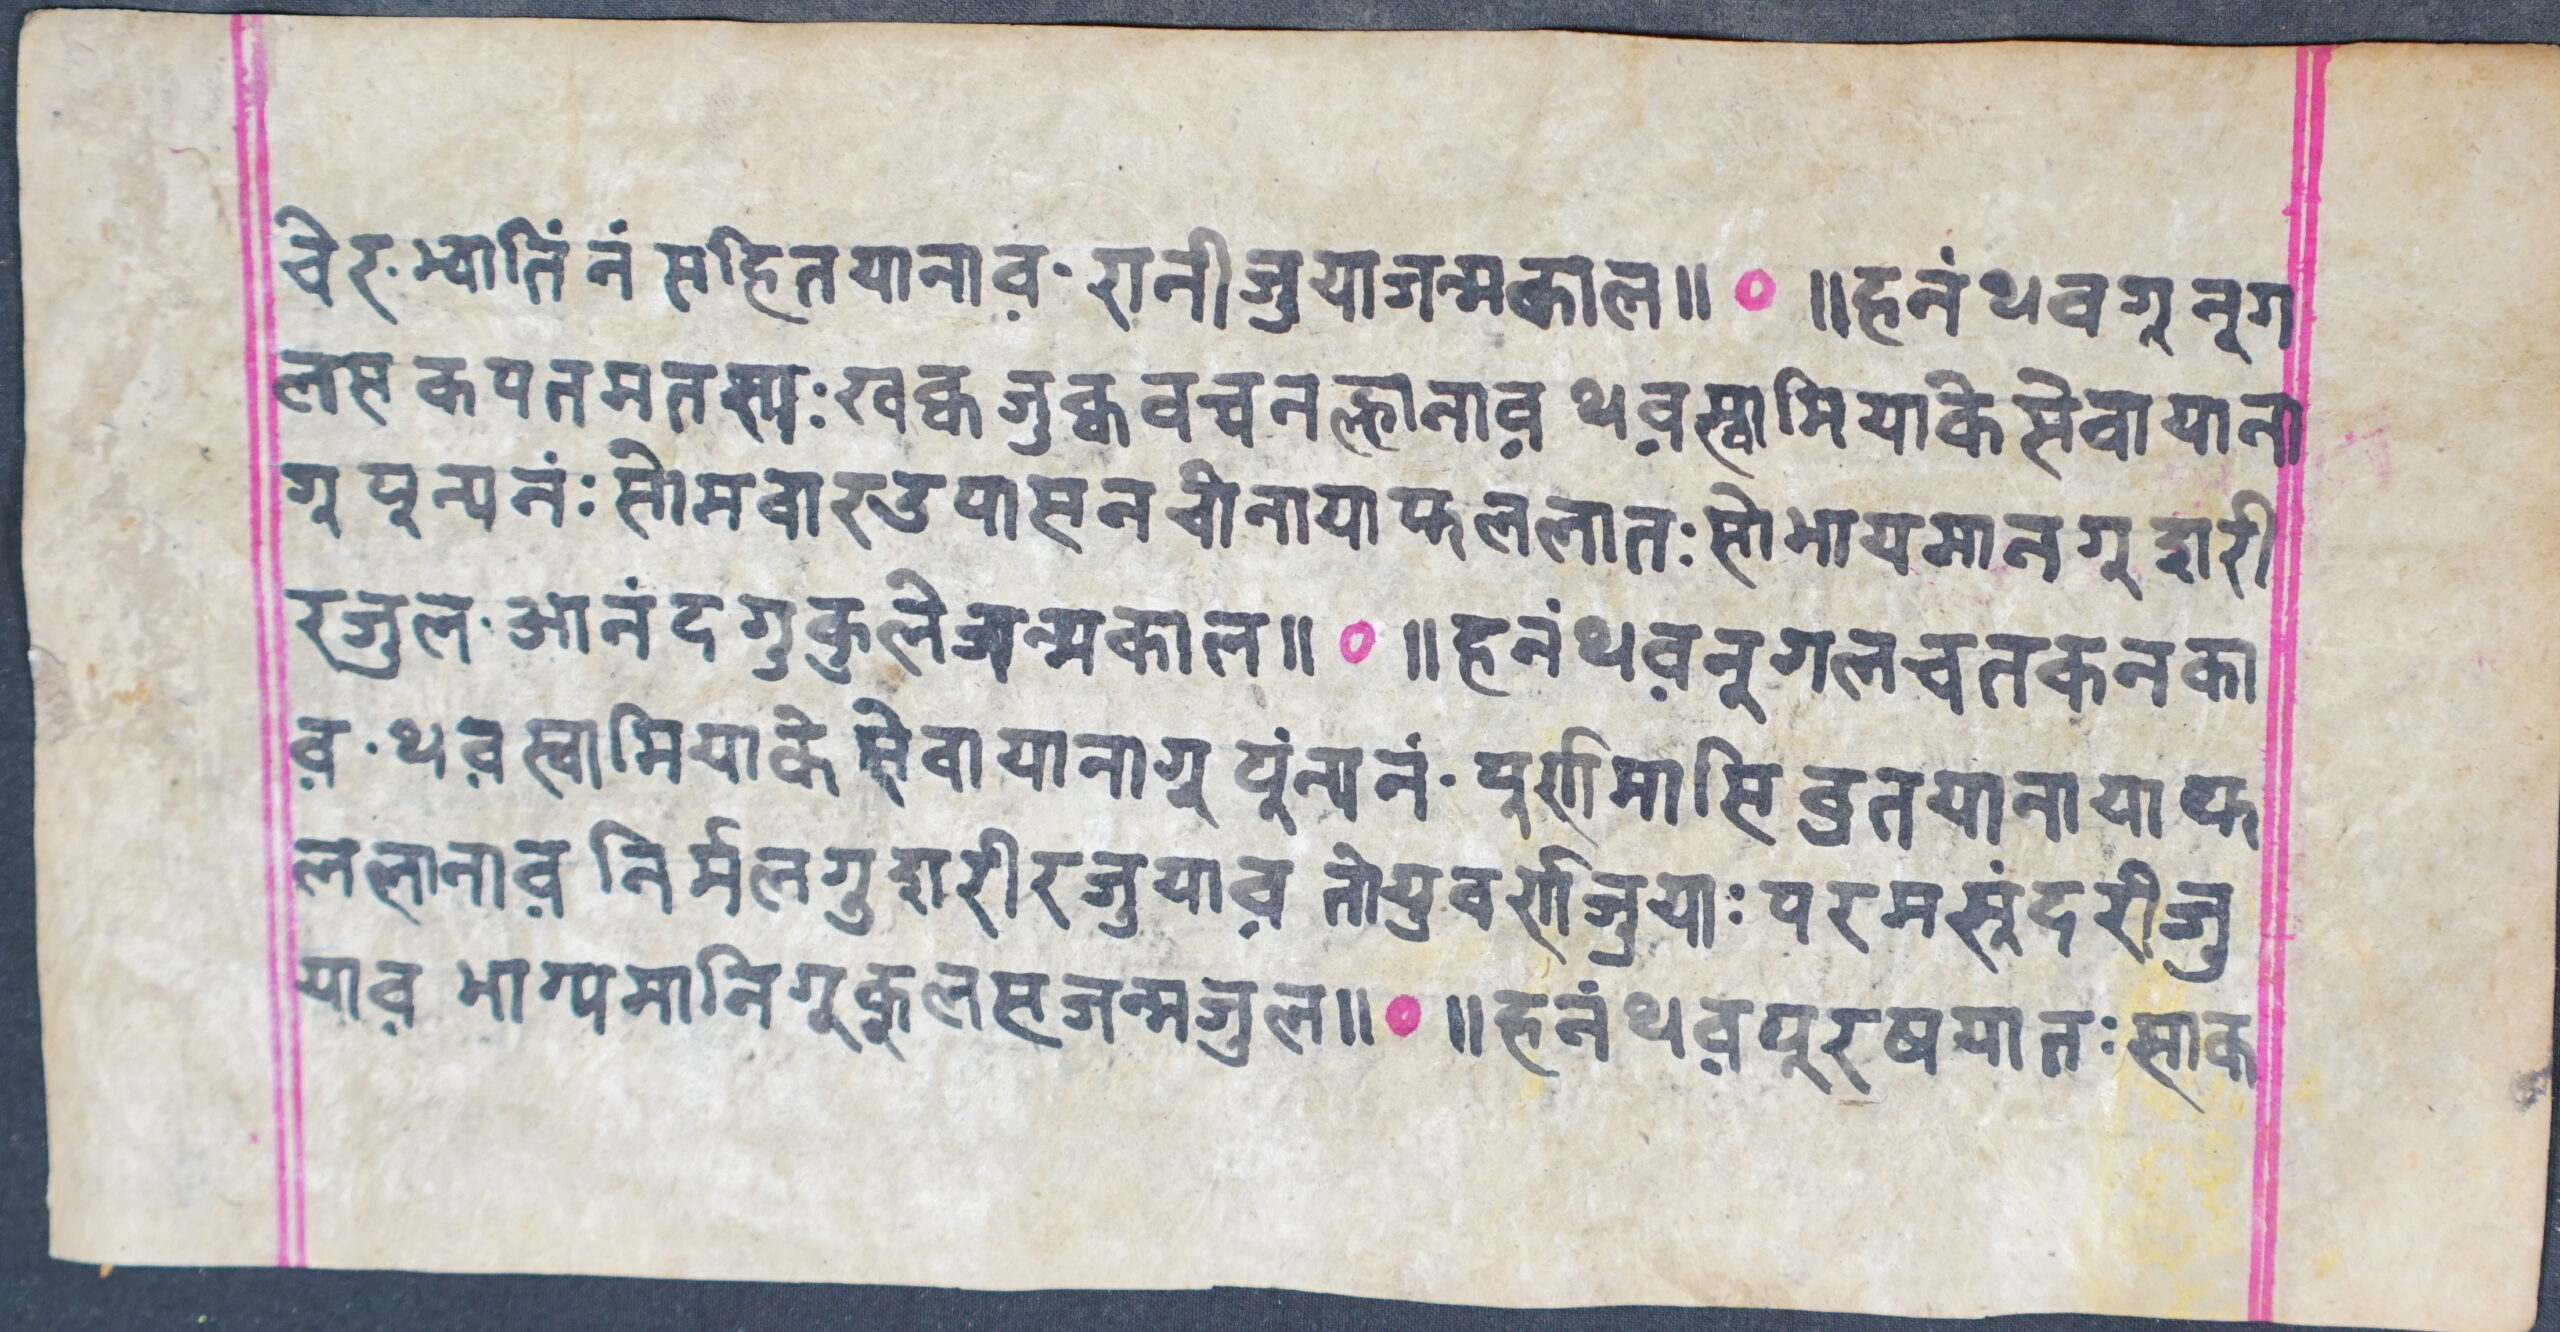 चेर·भ्यातिंनं सहितयानाव़·रानीजुयाजन्मकाल॥ ० ॥हनंथवगूनूग
लस कपतमतस्यः खक्वजुक्ववचनल्हानाव़ थव़स्वामियाके सेवायाना
गू पून्यनंः सोमवारउपासनचोनायाफललातः सोभायमानगू शरी
रजुल·आनंदगुकुलेजन्मकाल॥ ० ॥हनंथव़नूगलचतकनका
व़·थव़स्वामियाके सेवायानागू पूंन्यनं·पूर्णमासिव्रुतयानायाफ
ललानाव़ निर्मलगुशरीरजुयाव़ तोयुवर्णजुयाः परमसुंदरीजु
याव़ भाग्यमानिगूकूलसजन्मजुल॥ ० ॥हनंथव़पूरषयातः साक